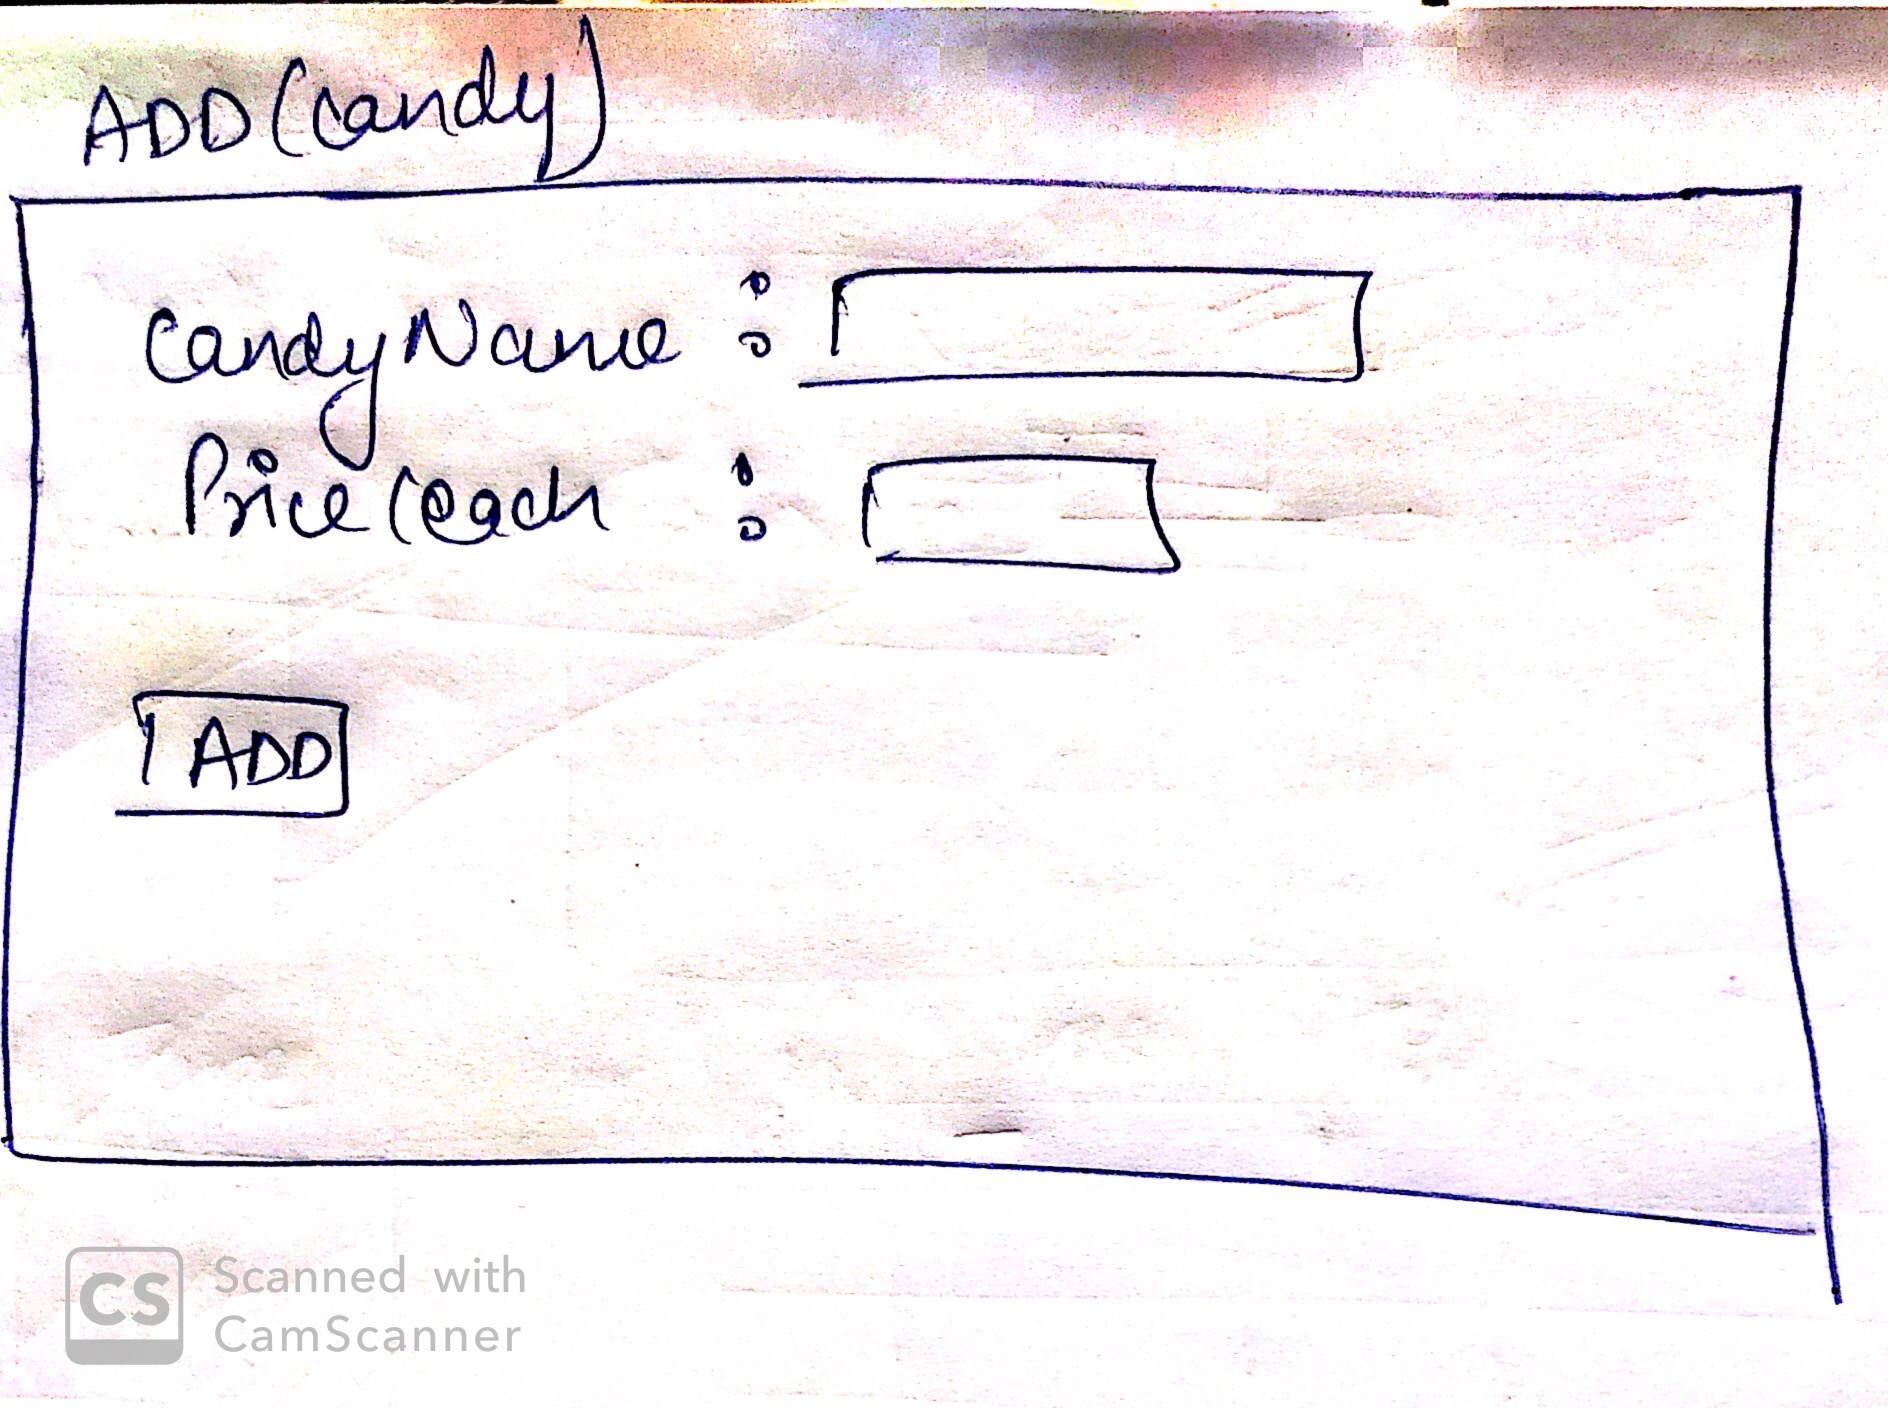 ADD (candy)
Candy Name :
Price (each :
ADD
CS Scanned with
CamScanner